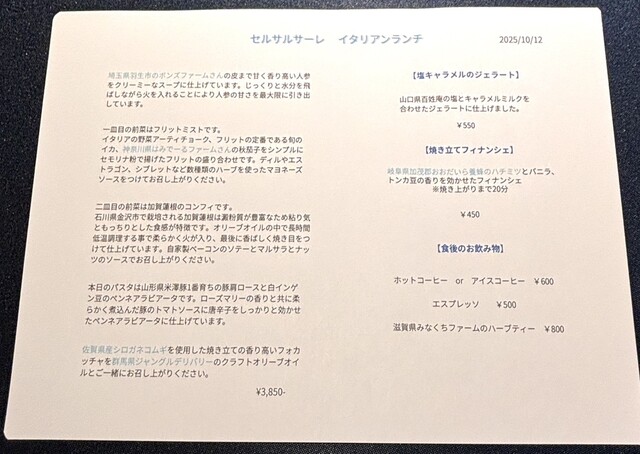 セルサルサーレ　イタリアンランチ
2025/10/12
埼玉県羽生市のポンズファームさんの皮まで甘く香り高い人参
をクリーミーなスープに仕上げています。じっくりと水分を飛
ばしながら火を入れることにより人参の甘さを最大限に引き出
しています。
一皿目の前菜はフリットミストです。
イタリアの野菜アーティチョーク、フリットの定番である旬の
イカ、神奈川県はみでーるファームさんの秋茄子をシンプルに
セモリナ粉で揚げたフリットの盛り合わせです。ディルやエス
トラゴン、シブレットなど数種類のハーブを使ったマヨネーズ
ソースをつけてお召し上がりください。
二皿目の前菜は加賀蓮根のコンフィです。
石川県金沢市で栽培される加賀蓮根は澱粉質が豊富なため粘り気
ともっちりとした食感が特徴です。オリーブオイルの中で長時間
低温調理する事で柔らかく火が入り、最後に香ばしく焼き目をつ
けて仕上げています。自家製ベーコンのソテーとマルサラとナッ
ツのソースでお召し上がりください。
本日のパスタは山形県米澤豚1番育ちの豚肩ロースと白インゲ
ン豆のペンネアラビアータです。ローズマリーの香りと共に柔
らかく煮込んだ豚のトマトソースに唐辛子をしっかりと効かせ
たペンネアラビアータに仕上げています。
佐賀県産シロガネコムギを使用した焼き立ての香り高いフォカ
ッチャを群馬県ジャングルデリバリーのクラフトオリーブオイ
ルとご一緒にお召し上がりください。
¥3,850-
【塩キャラメルのジェラート】
山口県百姓庵の塩とキャラメルミルクを
合わせたジェラートに仕上げました。
¥550
【焼き立てフィナンシェ】
岐阜県加茂郡おおだいら養蜂のハチミツとバニラ、
トンカ豆の香りを効かせたフィナンシェ
※焼き上がりまで20分
¥450
【食後のお飲み物】
ホットコーヒー　or　アイスコーヒー　¥600
エスプレッソ　　¥500
滋賀県みなくちファームのハーブティー　¥800